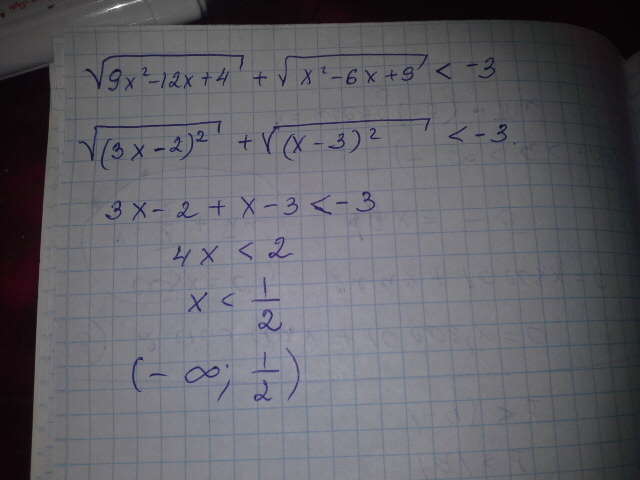 √(9x²-12x+4) + √(x²-6x+9) < -3
√((3x-2)²) + √((x-3)²) < -3.
3x-2+x-3<-3
4x < 2
x < 1/2
(- ∞; 1/2)